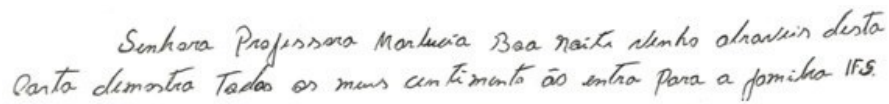 Senhora Professora Marlucia Boa Noite Venho atraveis desta
Carta demostra Todos os meus centimento ão entra Para a familha IFS.